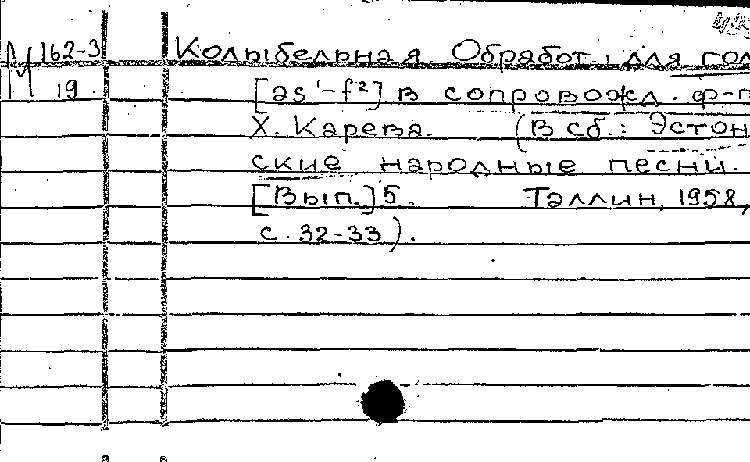 М 162-3 Колыбельная. Обработ. для гол
19. [as¹-f²] в сопровожд. ф-п
Х. Карева. (В сб.: Эстон
ские народные песни.
[Вып.] 5. Таллин, 1958,
с. 32-33).